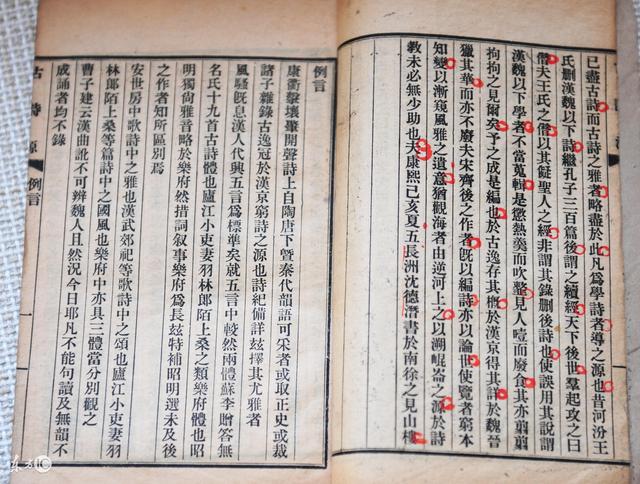 已盡古詩而古詩之雅者略盡於此凡爲學詩者導之源也昔河汾王
氏刪漢魏以下詩繼孔子三百篇後謂之續經天下後世羣起攻之曰
僭夫王氏之僭以其擬聖人之經非謂其錄刪後詩也使誤用其說謂
漢魏以下學者不當蒐輯是懲熱羹而吹虀見人噎而廢食其亦翦翦
拘拘之見爾矣予之成是編也於古逸存其概於漢京得其詳於魏晉
獵其華而亦不廢夫宋齊後之作者旣以編詩亦以論世使覽者窮本
知變以漸窺風雅之遺意猶觀海者由逆河上之以溯崐崙之源於詩
教未必無少助也夫康熙己亥夏五長洲沈德潛書於南徐之見山樓
例言
康衢擊壤肇開聲詩上自陶唐下曁秦代韻語可采者或取正史或裁
諸子雜錄古逸冠於漢京窮詩之源也詩紀備詳茲擇其尤雅者
風騷旣息漢人代興五言爲標準矣就五言中較然兩體蘇李贈答無
名氏十九首古詩體也廬江小吏妻羽林郎陌上桑之類樂府體也昭
明獨尚雅音略於樂府然措詞叙事樂府爲長茲特補昭明選未及後
之作者知所區別焉
安世房中歌詩中之雅也漢武郊祀等歌詩中之頌也廬江小吏妻羽
林郎陌上桑等篇詩中之國風也樂府中亦具三體當分別觀之
曹子建云漢曲訛不可辨魏人且然況今日耶凡不能句讀及無韻不
成誦者均不錄
古詩源 例言 一